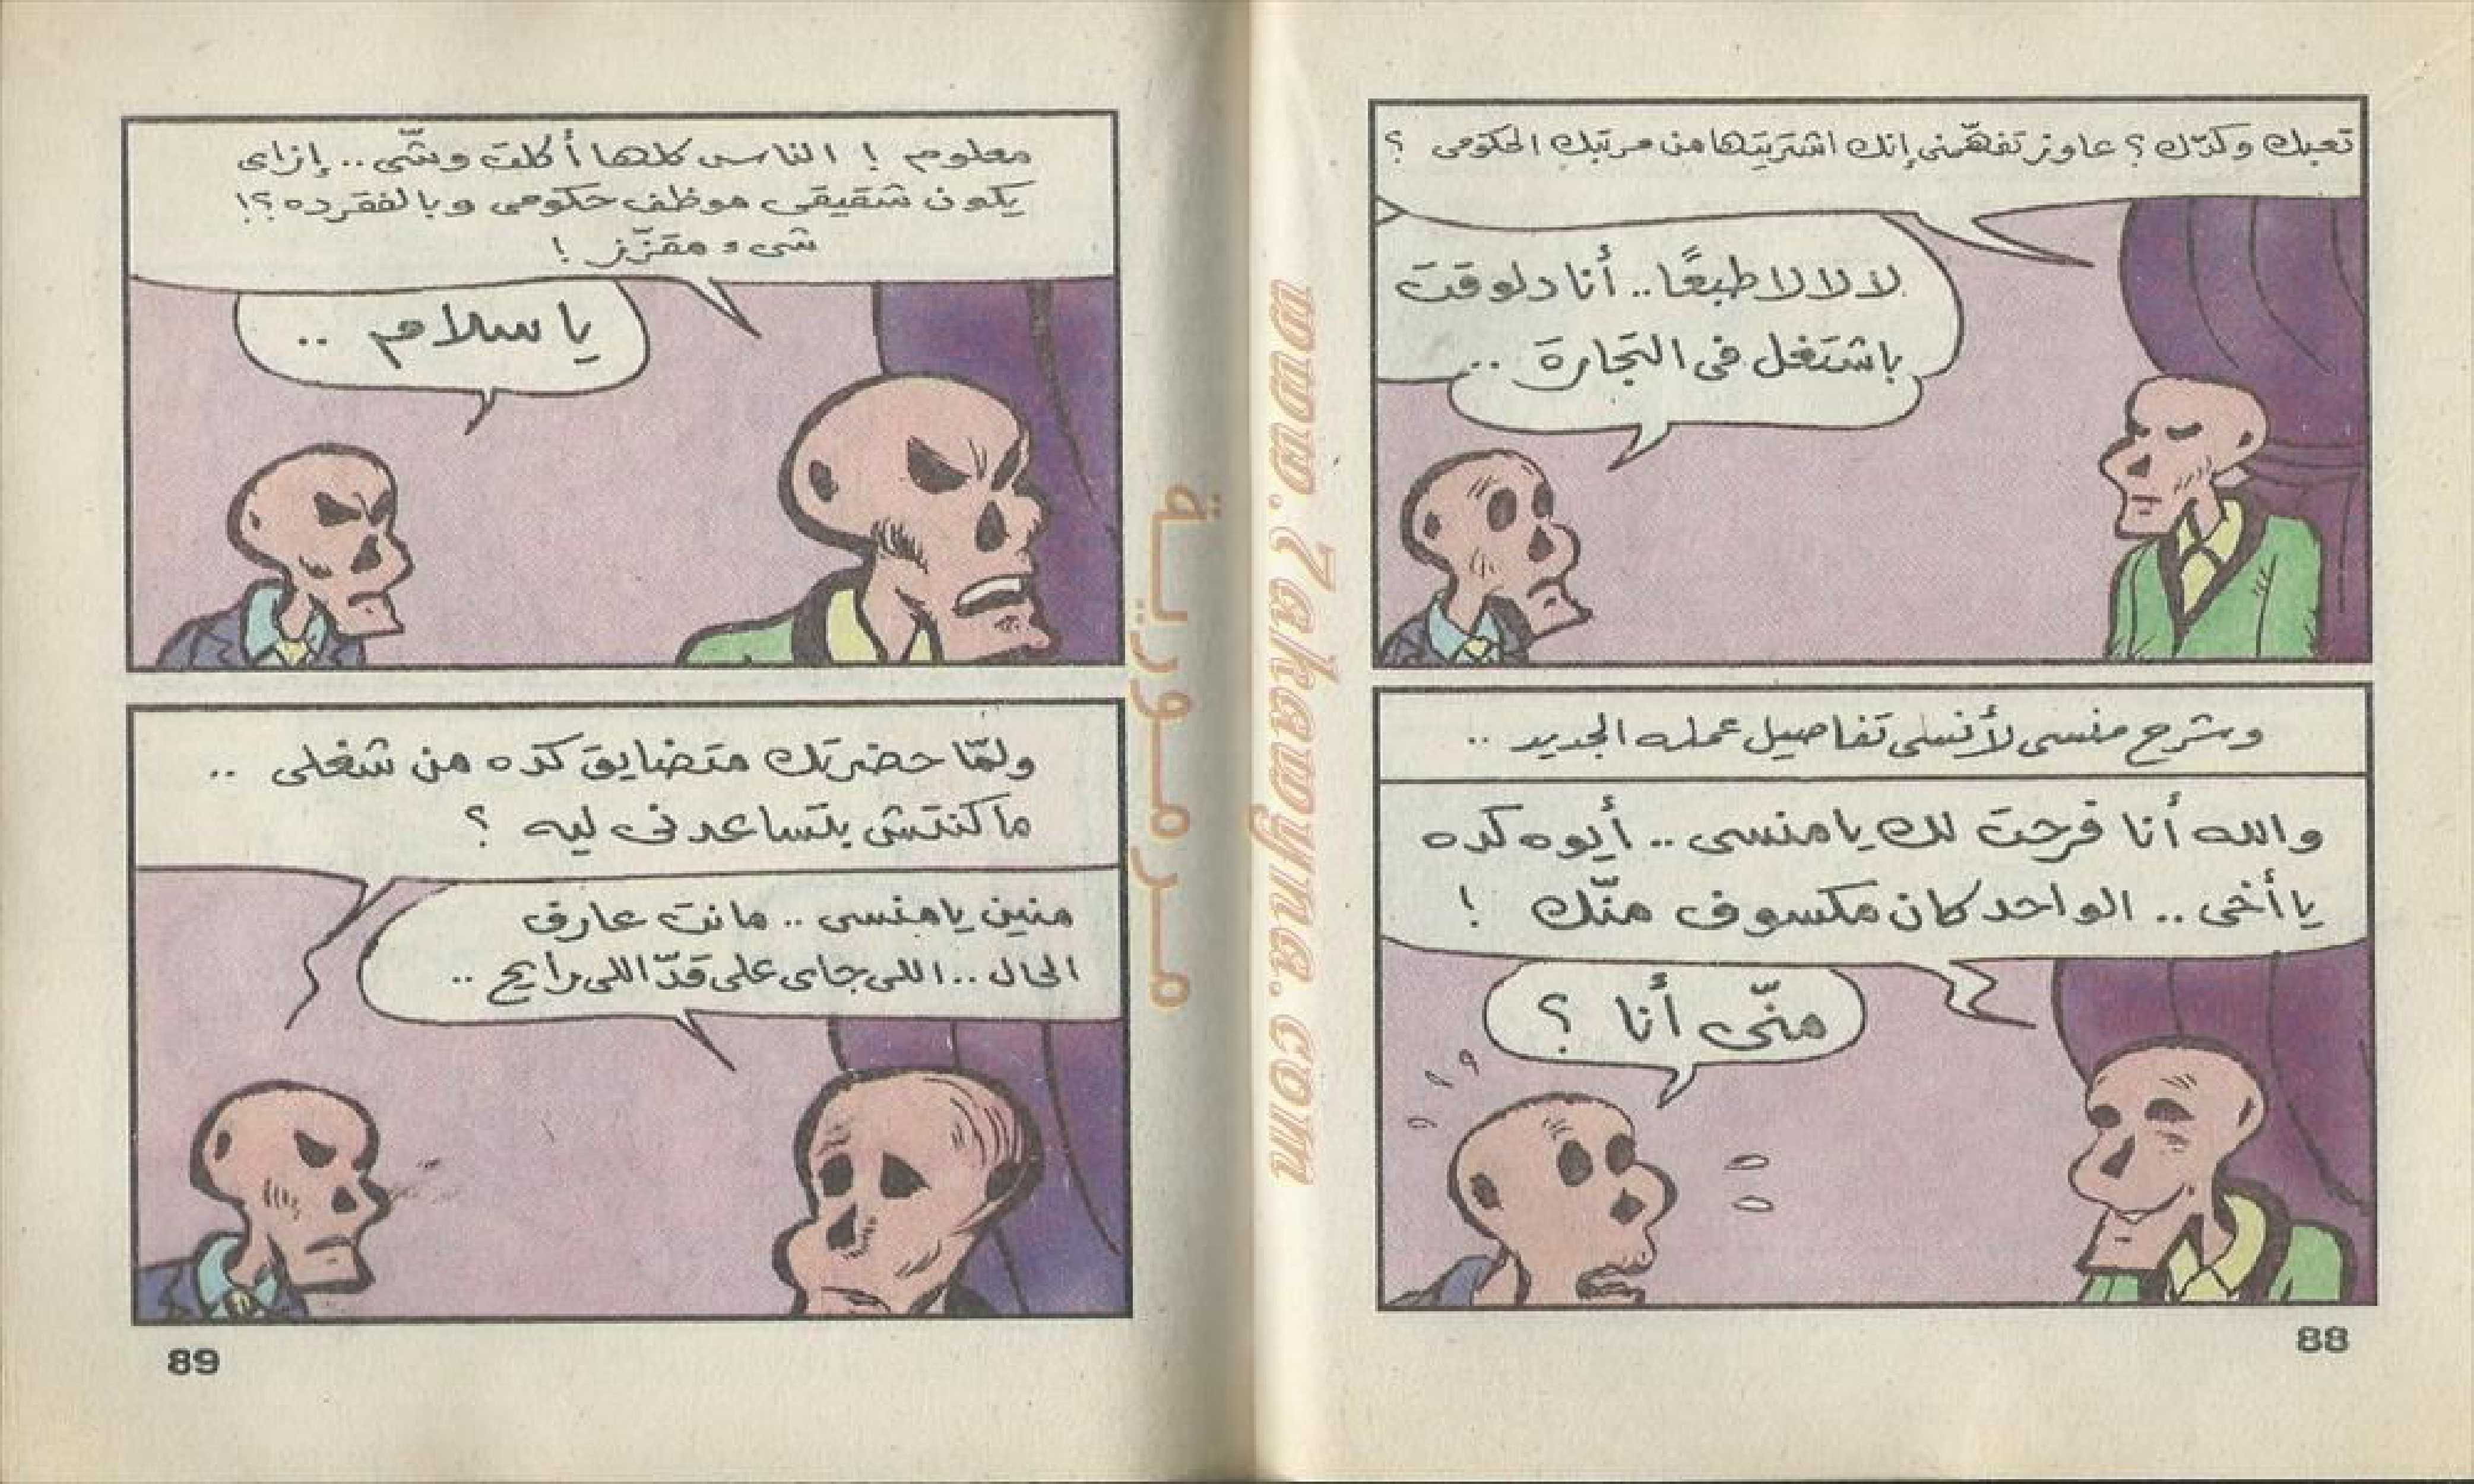 تعبك وكدّك؟ عاوز تفهّمنى إنك اشتريتها من مرتبك الحكومى ؟
لا لا لا طبعًا.. أنا دلوقت
باشتغل فى التجارة ..
وشرح منسى لأنسى تفاصيل عمله الجديد ..
والله أنا فرحت لك يا منسى .. أيوه كده
يا أخى .. الواحد كان مكسوف منّك !
منّى أنا ؟
88
معلوم ! الناس كلها أكلت وشّى .. إزاى
يكون شقيقى موظف حكومى وبالفقر ده ؟!
شىء مقزّز !
يا سلام ..
ولمّا حضرتك متضايق كده من شغلى ..
ما كنتش بتساعدنى ليه ؟
منين يا منسى .. ما نت عارف
الحال .. اللى جاى على قدّ اللى رايح ..
89
www.7akawyna.com
مرمورية